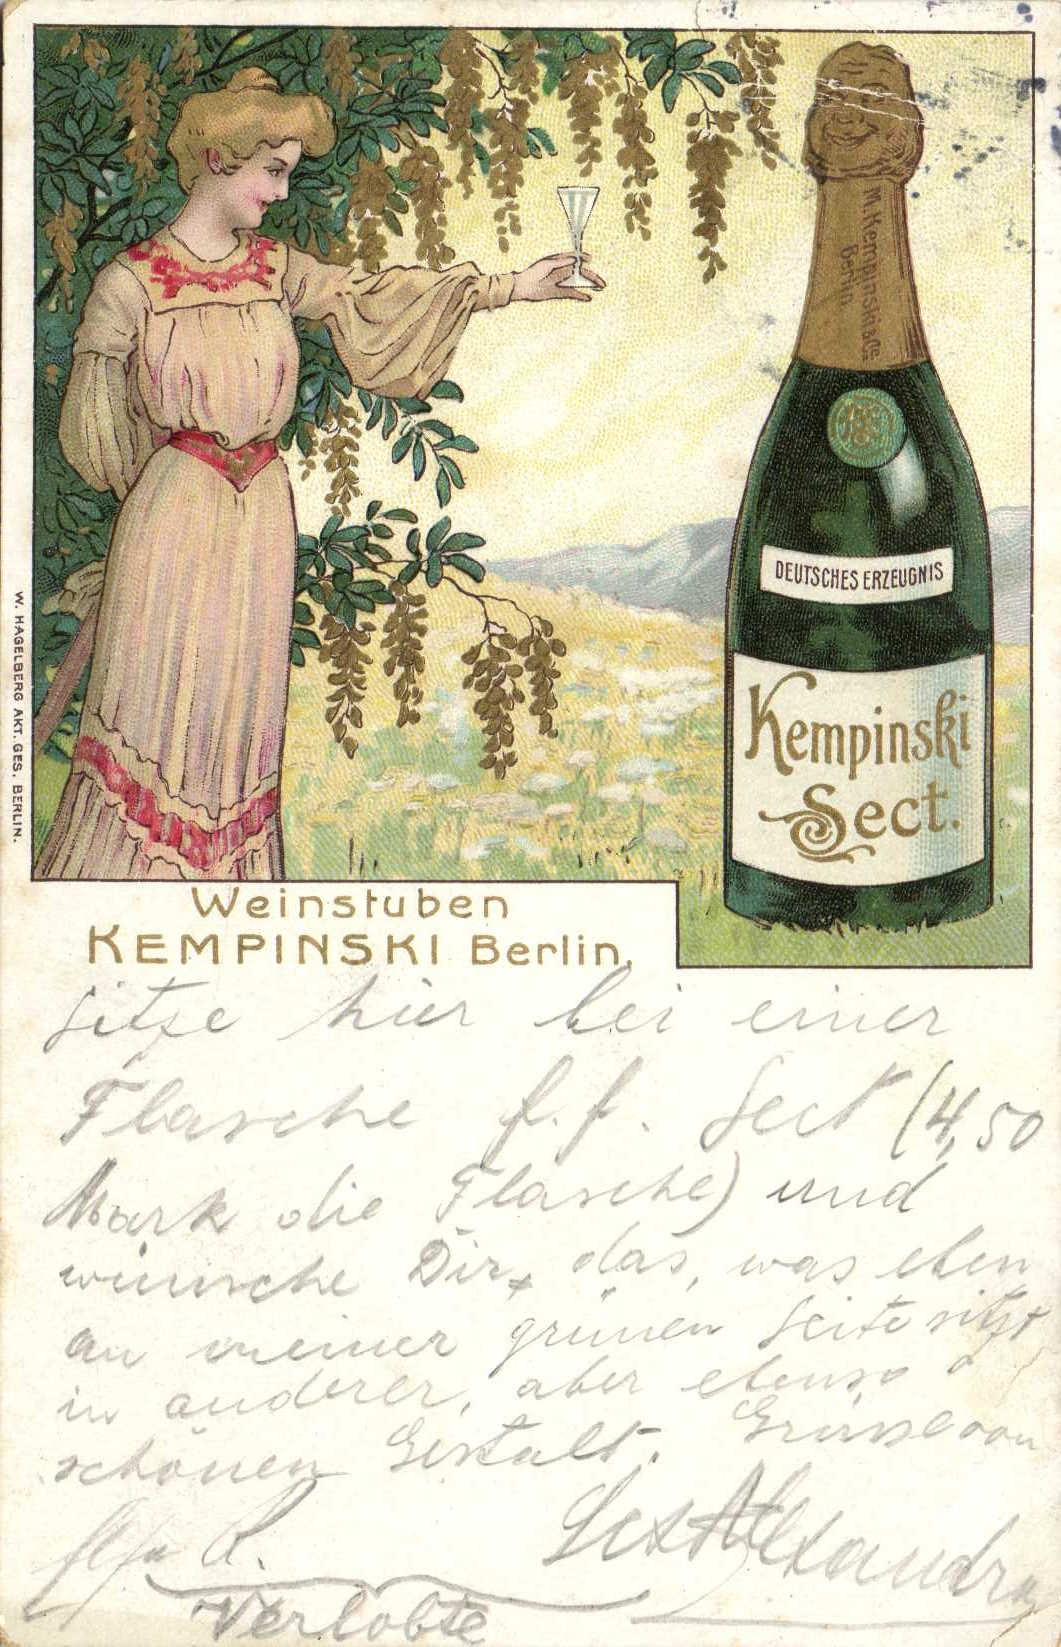 M. Kempinski & Co.
Berlin
DEUTSCHES ERZEUGNIS
Kempinski
Sect.
W. HAGELBERG AKT. GES. BERLIN.
Weinstuben
KEMPINSKI Berlin.
sitze hier bei einer
Flasche f.f. Sect (4,50
Mark die Flasche) und
wünsche Dir, das, was eben
an meiner grünen Seite sitzt
in anderer, aber ebenso
schönen Gestalt. Grüsse von
R. Alexandra
Verlobte